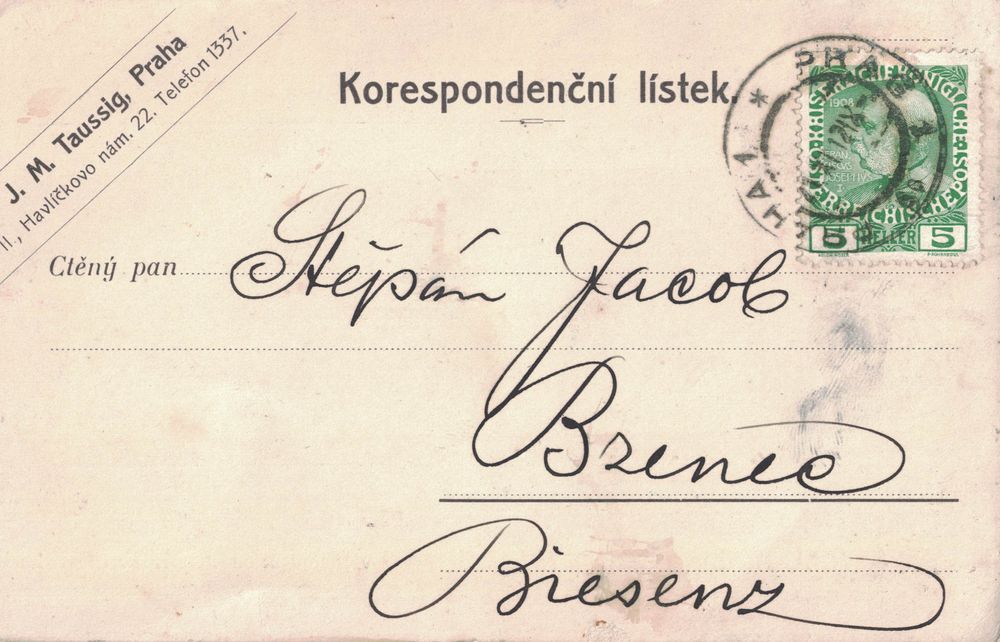 J. M. Taussig, Praha
II., Havlíčkovo nám. 22. Telefon 1337.
Korespondenční lístek.
Ctěný pan
Štěpán Jacob
Bzenec
Biesenz
PRAG
PRAHA 1 *
1908
FRAN
CISCVS
JOSEPHVS
I.
5 HELLER 5